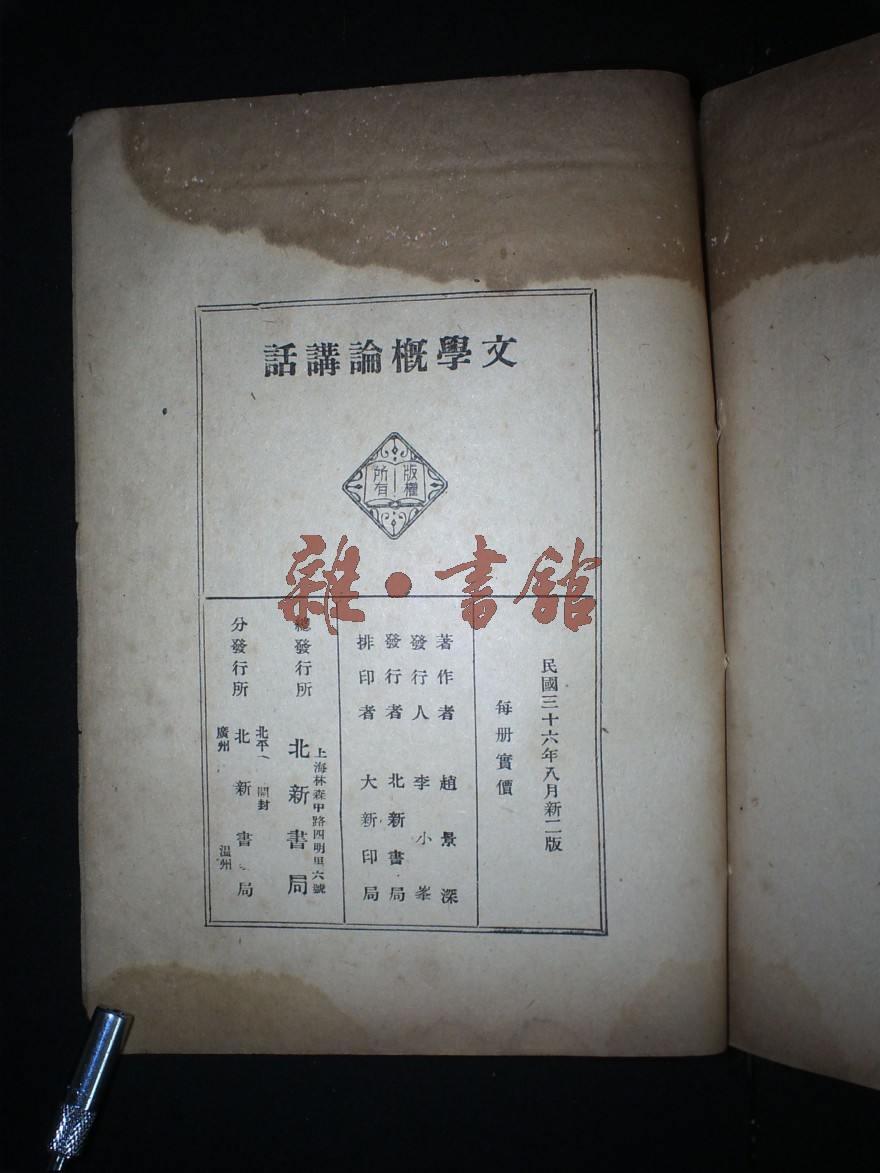 文學概論講話
版權
所有
雜·書館
民國三十六年八月新二版
每册實價
著作者 趙景深
發行人 李小峯
發行者 北新書局
排印者 大新印局
總發行所 北新書局
上海林森中路四明里六號
分發行所 北新書局
北平 開封
廣州 溫州